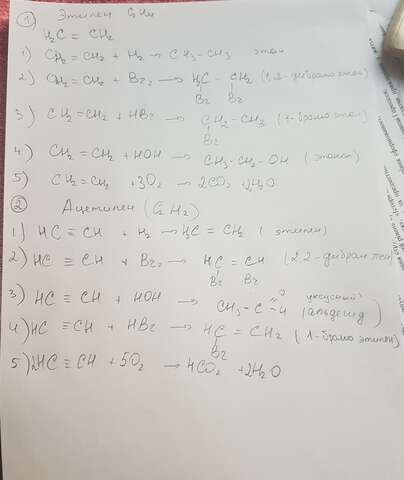 ① Этилен C₂H₄
H₂C = CH₂
1) CH₂=CH₂ + H₂ → CH₃-CH₃ этан
2) CH₂=CH₂ + Br₂ → H₂C - CH₂ (1,2-дибромэтан)
Br Br
3) CH₂=CH₂ + HBr → CH₂-CH₃ (1-бромо этан)
Br
4) CH₂=CH₂ + HOH → CH₃-CH₂-OH (этанол)
5) CH₂=CH₂ +3O₂ → 2CO₂ +2H₂O
② Ацетилен (C₂H₂)
1) HC ≡ CH + H₂ → H₂C = CH₂ (этилен)
2) HC ≡ CH + Br₂ → HC = CH (2,2-дибром
Br Br
3) HC ≡ CH + HOH → CH₃-C =O H (уксусный альдегид)
4) HC ≡ CH + HBr → HC = CH₂ (1-бромо этилен)
Br
5) 2HC ≡ CH + 5O₂ → 4CO₂ +2H₂O